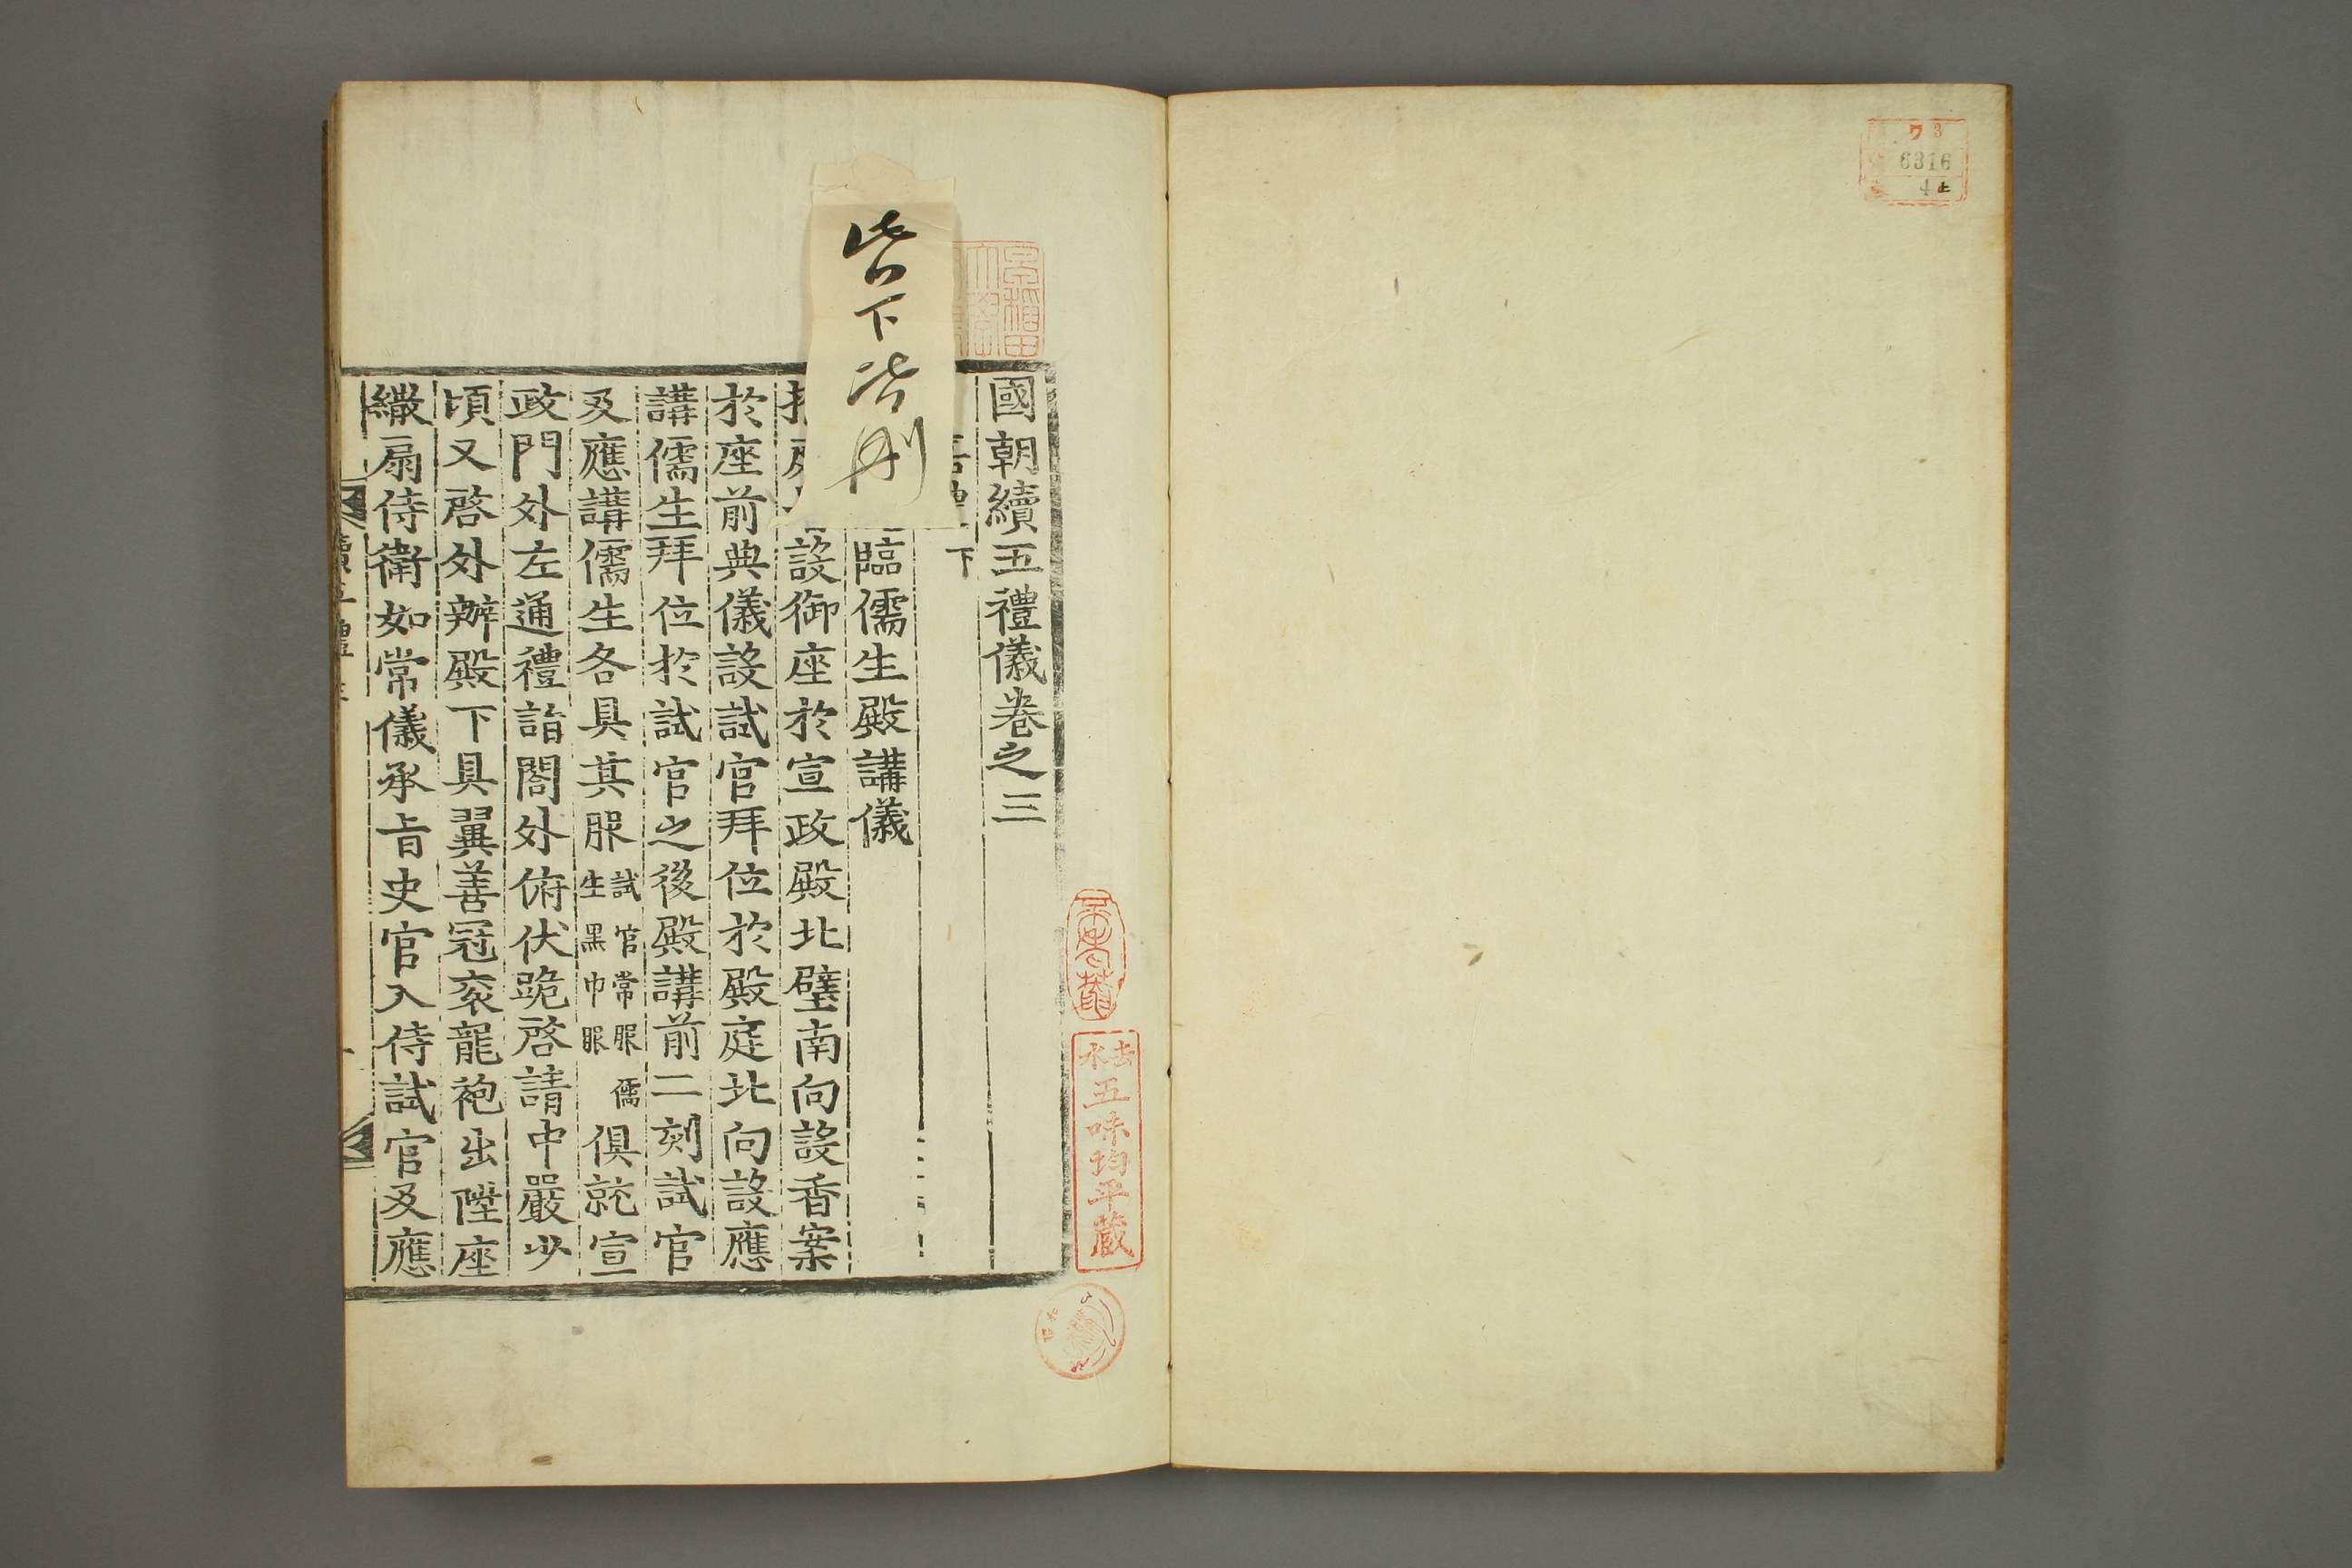 ワ3
6316
4上
國朝續五禮儀卷之三
下
臨儒生殿講儀
設御座於宣政殿北壁南向設香案
於座前典儀設試官拜位於殿庭北向設應
講儒生拜位於試官之後殿講前二刻試官
及應講儒生各具其服試官常服儒生黑巾服俱就宣
政門外左通禮詣閤外俯伏跪啓請中嚴少
頃又啓外辦殿下具翼善冠衮龍袍出陞座
繖扇侍衛如常儀承旨史官入侍試官及應
皆下皆刪
五味均平蔵